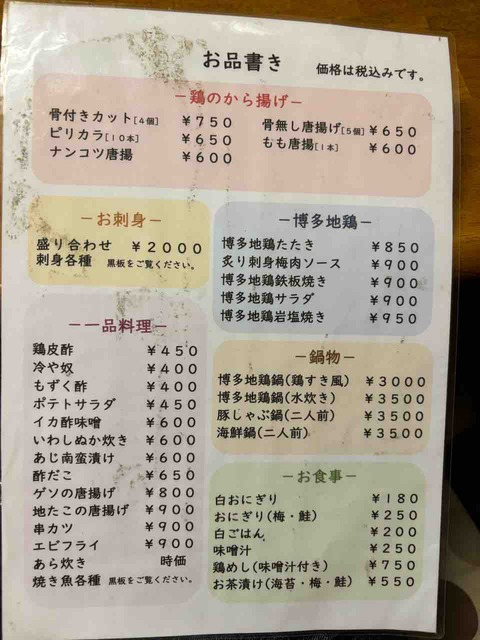 お品書き 価格は税込みです。
－鶏のから揚げ－
骨付きカット[4個] ￥750
ピリカラ[10本] ￥650
ナンコツ唐揚 ￥600
骨無し唐揚げ[5個] ￥650
もも唐揚[1本] ￥600
－お刺身－
盛り合わせ ￥2000
刺身各種 黒板をご覧ください。
－博多地鶏－
博多地鶏たたき ￥850
炙り刺身梅肉ソース ￥900
博多地鶏鉄板焼き ￥900
博多地鶏サラダ ￥900
博多地鶏岩塩焼き ￥950
－一品料理－
鶏皮酢 ￥450
冷や奴 ￥400
もずく酢 ￥400
ポテトサラダ ￥450
イカ酢味噌 ￥600
いわしぬか炊き ￥600
あじ南蛮漬け ￥600
酢だこ ￥650
ゲソの唐揚げ ￥800
地たこの唐揚げ ￥900
串カツ ￥900
エビフライ ￥900
あら炊き 時価
焼き魚各種 黒板をご覧ください。
－鍋物－
博多地鶏鍋(鶏すき風) ￥3000
博多地鶏鍋(水炊き) ￥3500
豚じゃぶ鍋(二人前) ￥3500
海鮮鍋(二人前) ￥3500
－お食事－
白おにぎり ￥180
おにぎり(梅・鮭) ￥250
白ごはん ￥200
味噌汁 ￥250
鶏めし(味噌汁付き) ￥750
お茶漬け(海苔・梅・鮭) ￥550